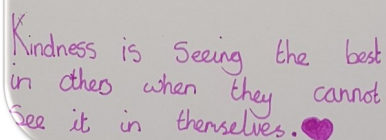 Kindness is seeing the best
in others when they cannot
see it in themselves.